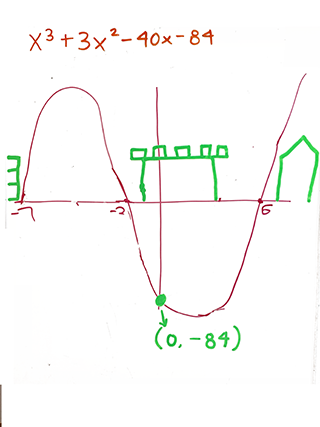 x³+3x²-40x-84
-7 -2 6
(0,-84)